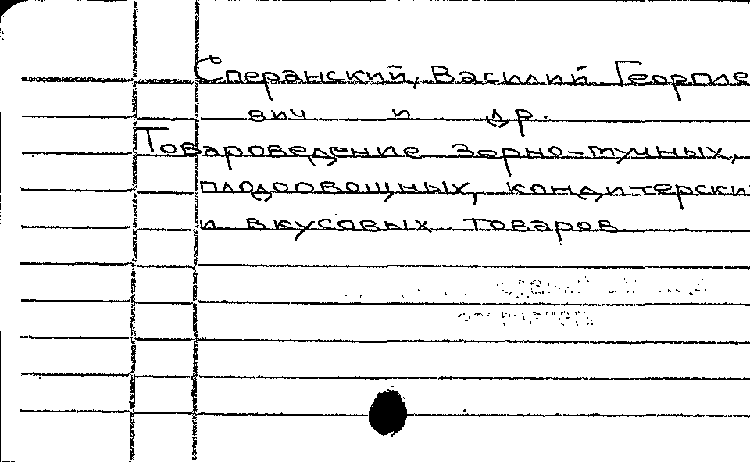 Сперанский, Василий Георгие
вич и др.
Товароведение зерно-мучных,
плодоовощных, кондитерски
и вкусовых товаров